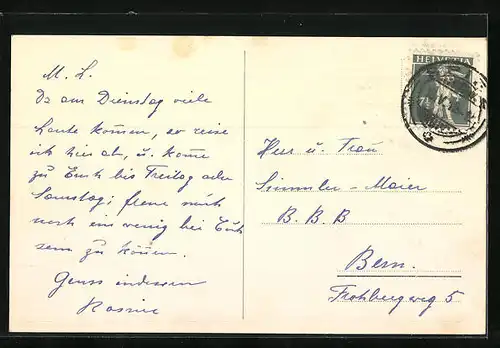 M. L.
Da am Dienstag viele
Leute kommen, so reise
ich hier ab, u. komme
zu Euch bis Freitag oder
Samstag; freue mich
noch ein wenig bei Euch
sein zu können.
Gruss indessen
HELVETIA
Herr u. Frau
Simmler-Maier
B. B. B
Bern.
Frohbergweg 5